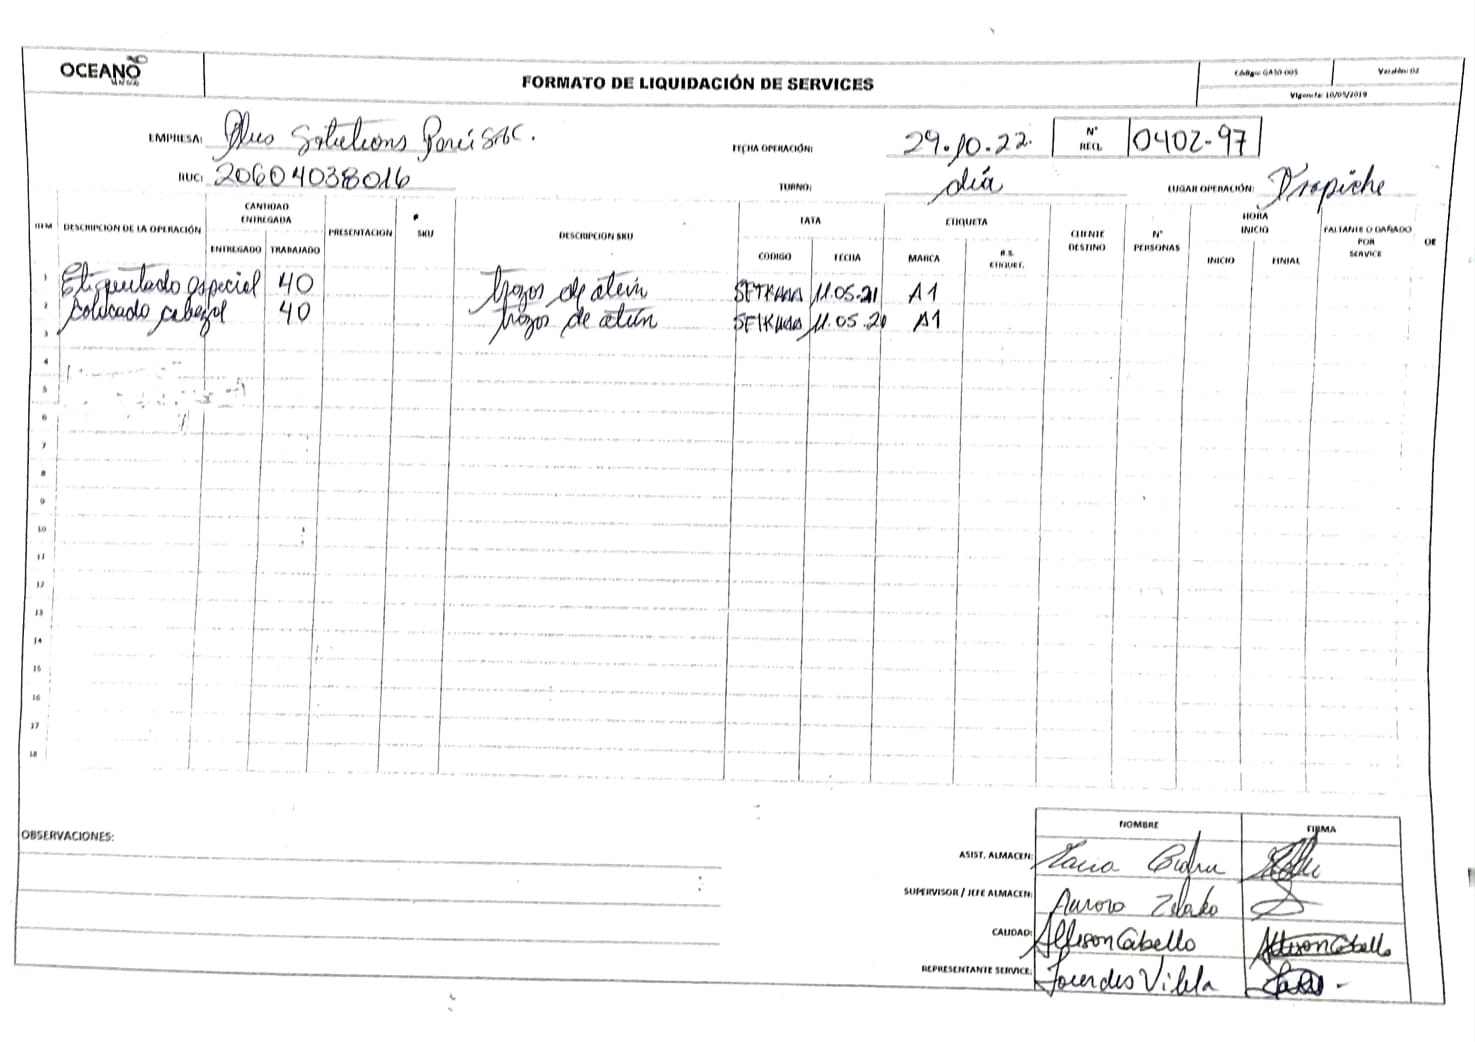 OCEANO
FORMATO DE LIQUIDACIÓN DE SERVICES
Código: GASO 005
Versión: 02
Vigencia: 10/05/2019
EMPRESA: Plus Solutions Perú SAC.
FECHA OPERACIÓN: 29.10.22
N° REQ. 0402-97
RUC: 20604038016
TURNO: día
LUGAR OPERACIÓN: Trapiche
ITEM DESCRIPCION DE LA OPERACIÓN CANTIDAD ENTREGADA PRESENTACION SKU DESCRIPCION SKU LATA ETIQUETA CLIENTE DESTINO N° PERSONAS HORA INICIO FALTANTE O DAÑADO POR SERVICE OE
ENTREGADO TRABAJADO CODIGO FECHA MARCA R.S. ETIQUET. INICIO FINIAL
1 Etiquetado especial 40 trozos de atún 11.05.21 A1
2 Colocado cabezal 40 trozos de atún 11.05.20 A1
3
4
5
6
7
8
9
10
11
12
13
14
15
16
17
18
OBSERVACIONES:
NOMBRE FIRMA
ASIST. ALMACEN: Maria
SUPERVISOR / JEFE ALMACEN: Aurora
CALIDAD: Allison Cabello Allison Cabello
REPRESENTANTE SERVICE: Lourdes Vilela